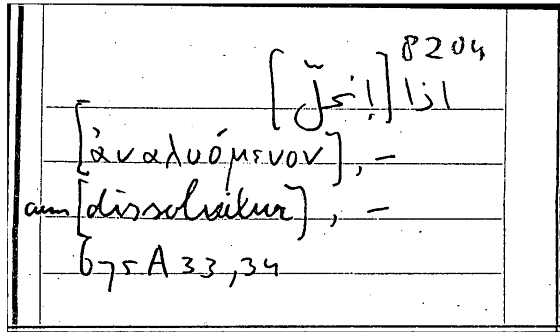 8204
اذا [إنحلّ]
[ἀναλυόμενον], –
cum [dissolvitur], –
675A33,34